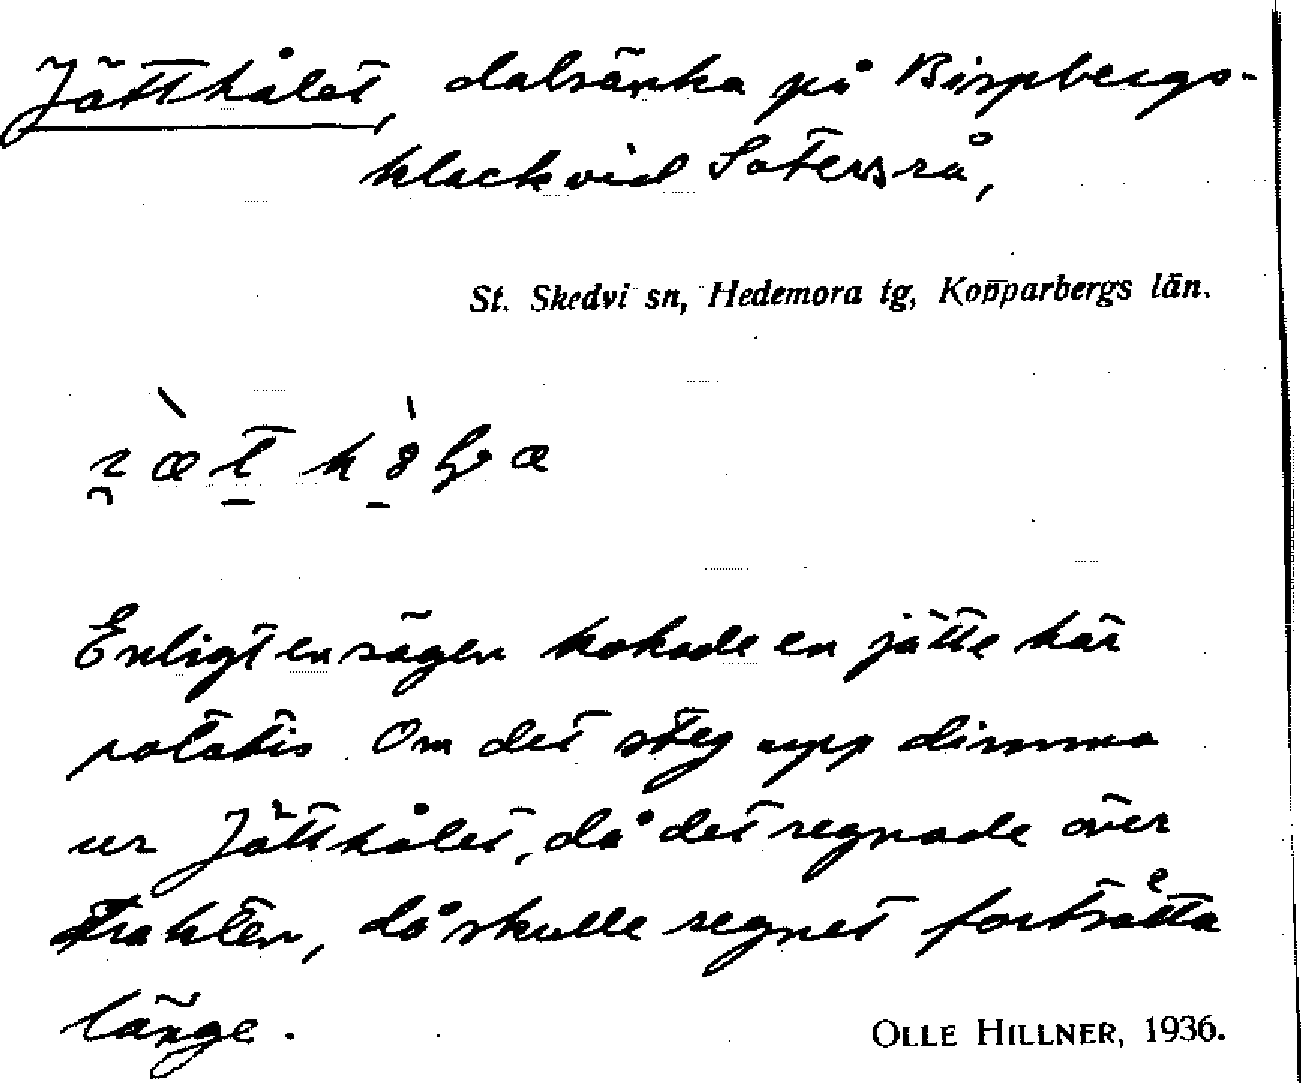 Jätthålet, dalsänka på Bispbergs-
klack vid Säters rå,
St. Skedvi sn, Hedemora tg, Kopparbergs län.
Enligt en sägen kokade en jätte här
potatis. Om det steg upp dimma
ur Jätthålet, då det regnade över
trakten, då skulle regnet fortsätta
länge.
OLLE HILLNER, 1936.